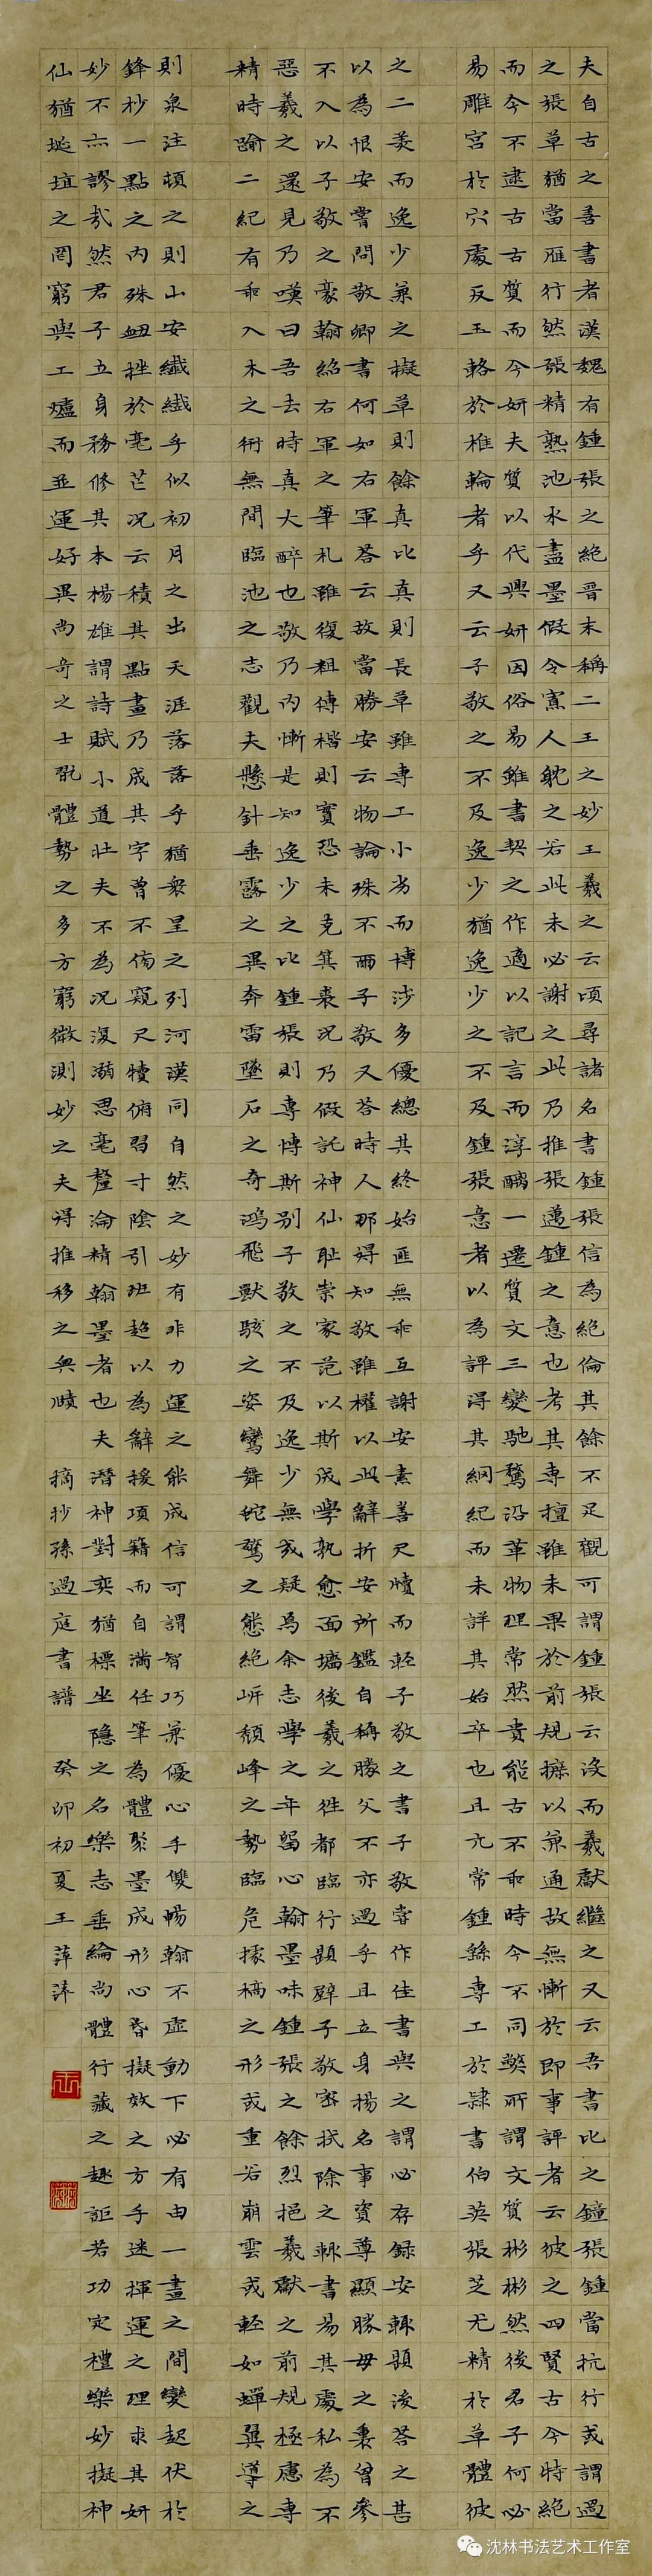 夫自古之善書者漢魏有鍾張之絕晉末稱二王之妙王羲之云頃尋諸名書鍾張信為絕倫其餘不足觀可謂鍾張云沒而羲獻繼之又云吾書比之鐘張鍾當抗行或謂過
之張草猶當雁行然張精熟池水盡墨假令寡人耽之若此未必謝之此乃推張邁鍾之意也考其專擅雖未果於前規摭以兼通故無慚於即事評者云彼之四賢古今特絕
而今不逮古古質而今妍夫質以代興妍因俗易雖書契之作適以記言而淳醨一遷質文三變馳騖沿革物理常然貴能古不乖時今不同弊所謂文質彬彬然後君子何必
易雕宮於穴處反玉輅於椎輪者乎又云子敬之不及逸少猶逸少之不及鍾張意者以為評得其綱紀而未詳其始卒也且元常鍾繇專工於隸書伯英張芝尤精於草體彼
之二美而逸少兼之擬草則餘真比真則長草雖專工小劣而博涉多優總其終始匪無乖互謝安素善尺牘而輕子敬之書子敬嘗作佳書與之謂必存録安輒題後答之甚
以為恨安嘗問敬卿書何如右軍答云故當勝安云物論殊不爾子敬又答時人那得知敬雖權以此辭折安所鑑自稱勝父不亦過乎且立身揚名事資尊顯勝母之裏曾參
不入以子敬之豪翰紹右軍之筆札雖復粗傳楷則實恐未克箕裘況乃假託神仙恥崇家范以斯成學孰愈面墻後羲之往都臨行題壁子敬密拭除之輒書易其處私為不
惡羲之還見乃嘆曰吾去時真大醉也敬乃內慚是知逸少之比鍾張則專博斯別子敬之不及逸少無或疑焉余志學之年留心翰墨味鍾張之餘烈挹羲獻之前規極慮專
精時踰二紀有乖入木之術無間臨池之志觀夫懸針垂露之異奔雷墜石之奇鴻飛獸駭之姿鸞舞蛇驚之態絕岸頹峰之勢臨危據槁之形或重若崩雲或輕如蟬翼導之
則泉注頓之則山安纖纖乎似初月之出天涯落落乎猶眾星之列河漢同自然之妙有非力運之能成信可謂智巧兼優心手雙暢翰不虛動下必有由一畫之間變起伏於
鋒杪一點之內殊衄挫於毫芒況云積其點畫乃成其字曾不傍窺尺牘俯習寸陰引班超以為辭援項籍而自滿任筆為體聚墨成形心昏擬效之方手迷揮運之理求其妍
妙不亦謬哉然君子立身務修其本楊雄謂詩賦小道壯夫不為況復溺思毫釐淪精翰墨者也夫潛神對奕猶標坐隱之名樂志垂綸尚體行藏之趣詎若功定禮樂妙擬神
仙猶埏埴之罔窮與工爐而並運好異尚奇之士翫體勢之多方窮微測妙之夫得推移之奧賾 摘抄孫過庭書譜 癸卯初夏王萍萍
王
萍萍
沈林书法艺术工作室